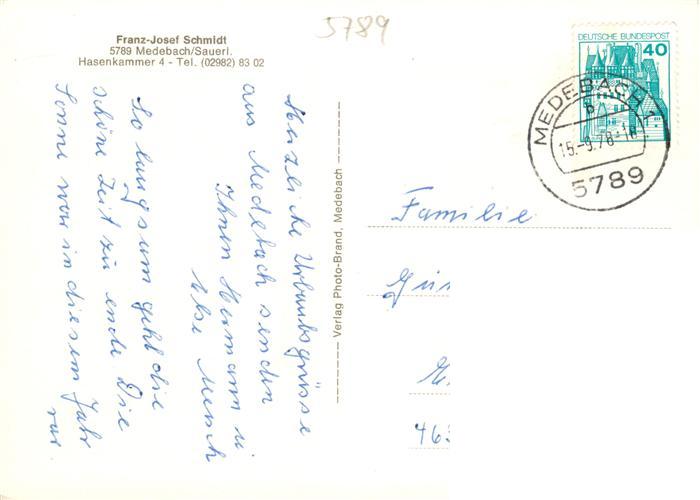 5789
Franz-Josef Schmidt
5789 Medebach/Sauerl.
Hasenkammer 4 - Tel. (02982) 83 02
DEUTSCHE BUNDESPOST
40
MEDEBACH 1
b
15.-9.78-18
5789
Herzliche Urlaubsgrüsse
aus Medebach senden
Ihnen Hermann u.
Else
So langsam geht die
schöne Zeit zu ende Die
Sonne war in diesem Jahr
rar.
Verlag Photo-Brand, Medebach
Familie
46